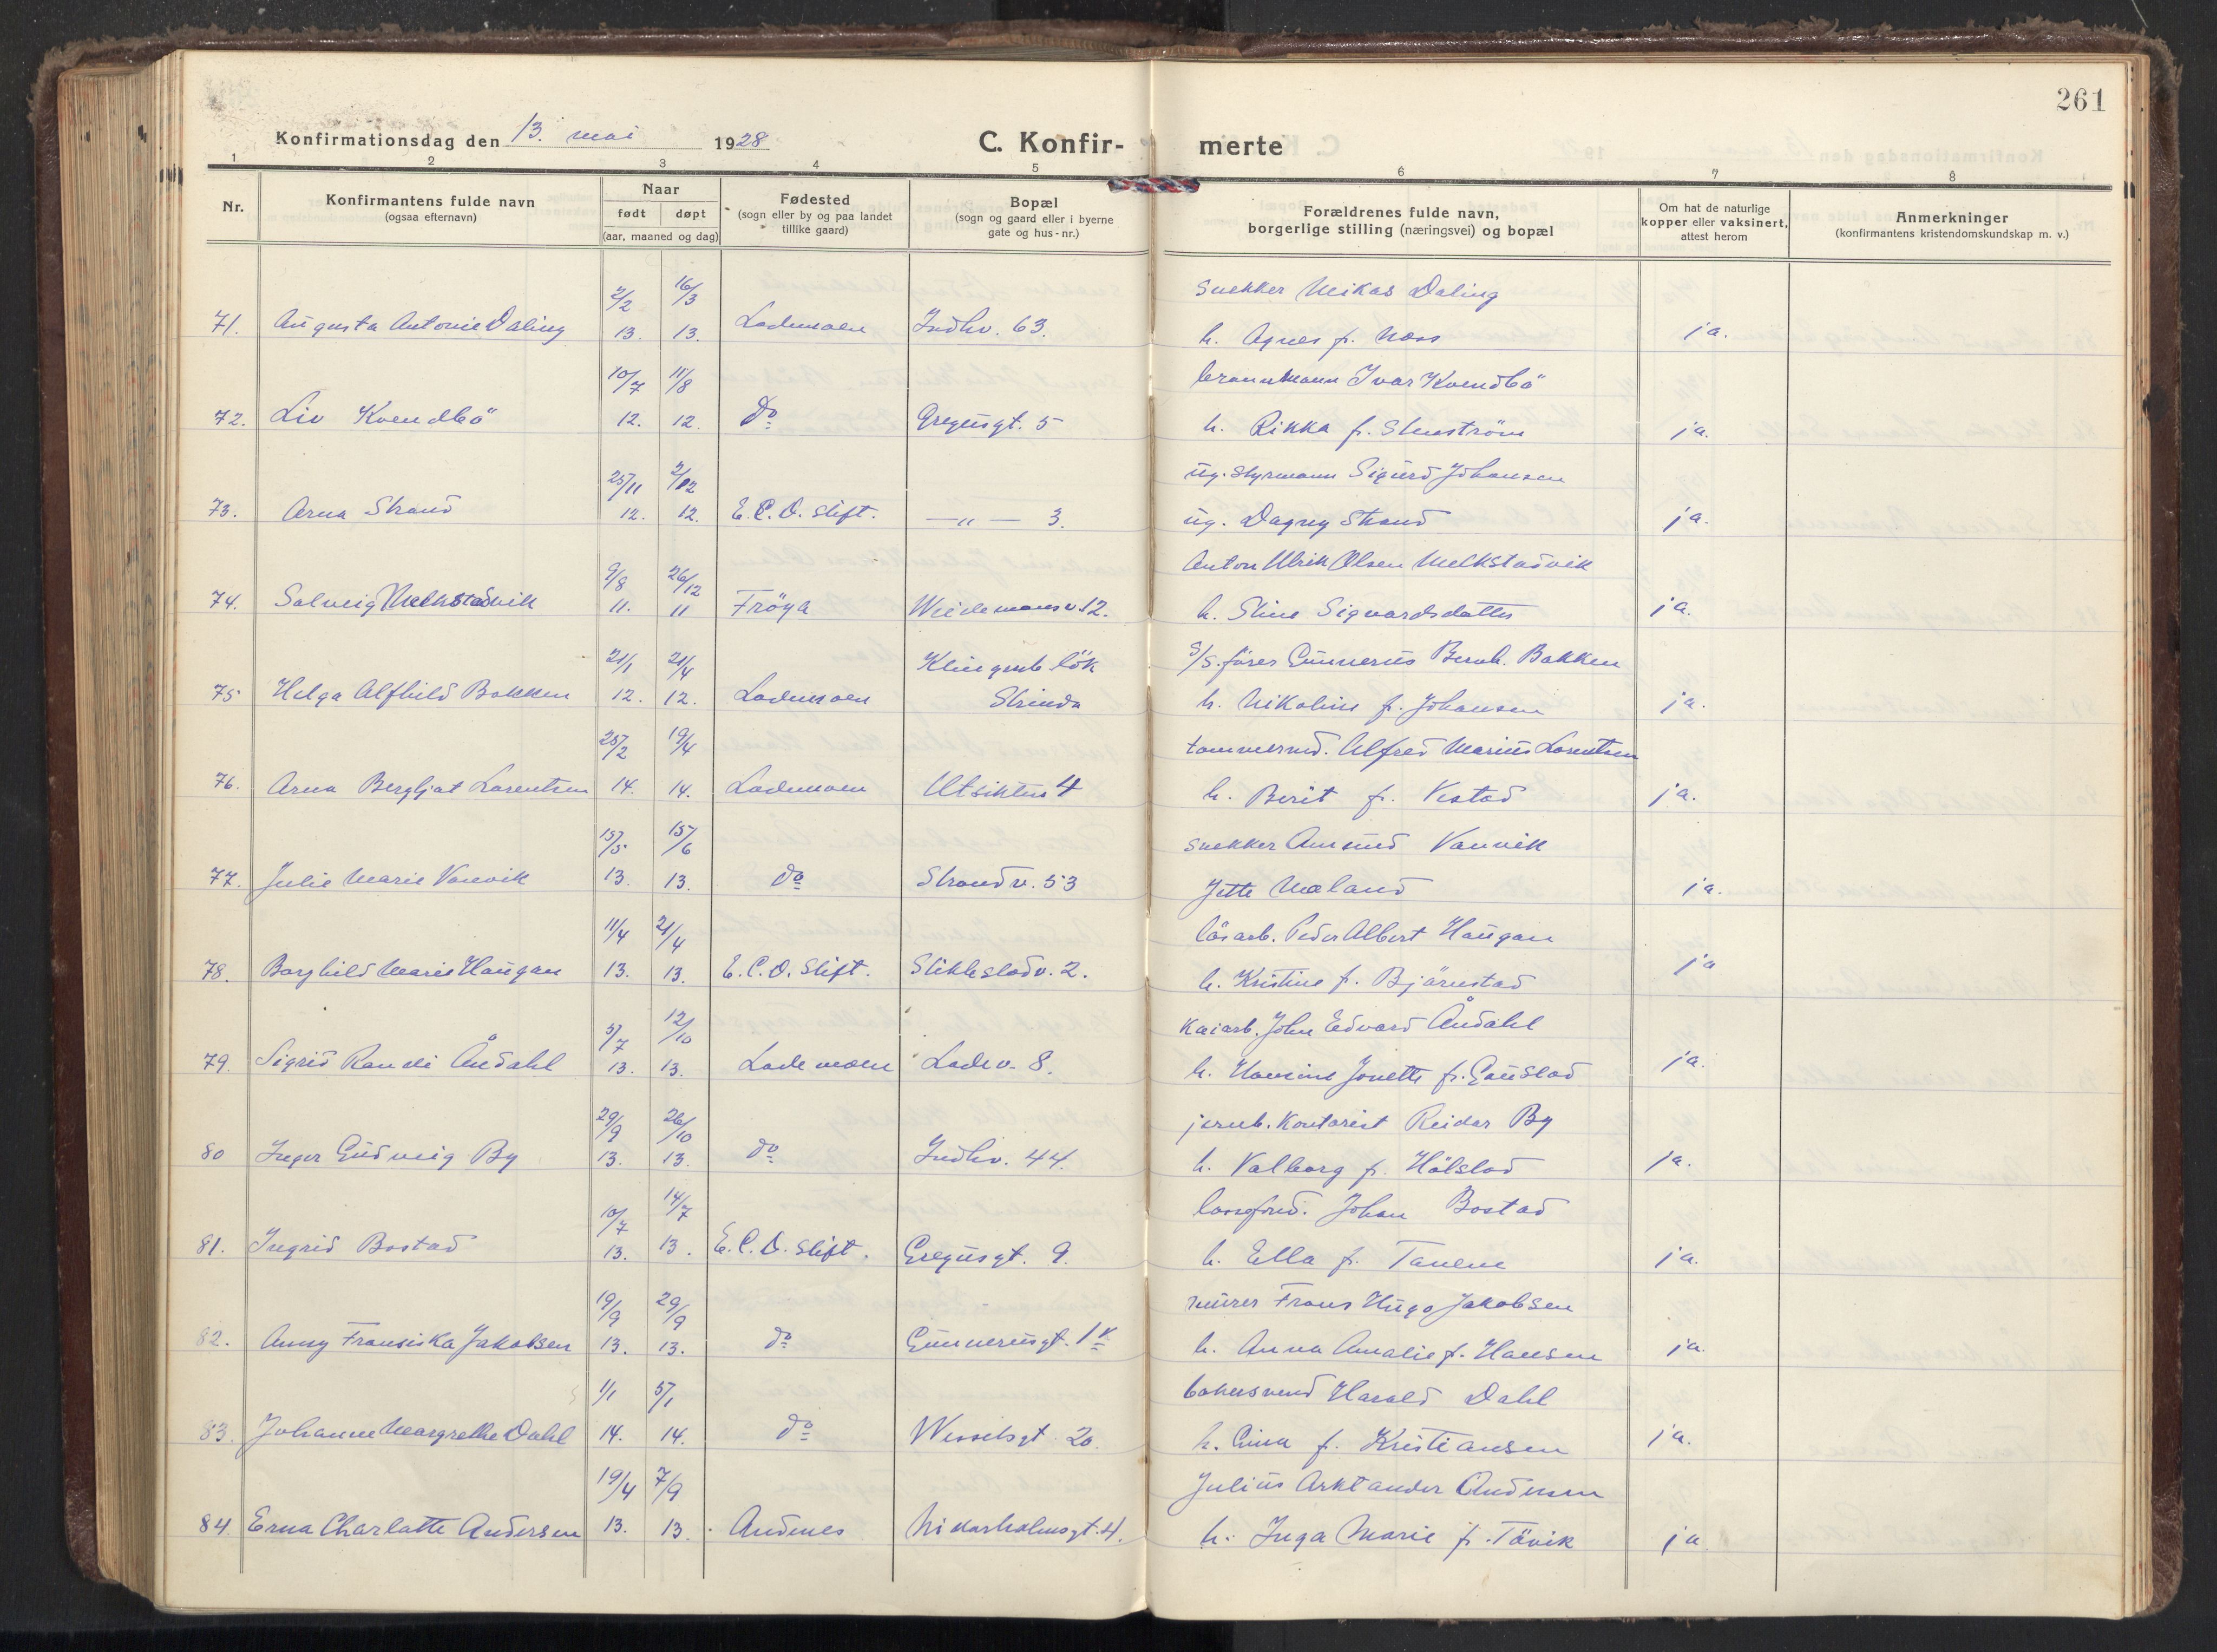 261
Konfirmationsdag den 13. mai 1928 C. Konfir- merte
1 2 3 4 5 6 7 8
Nr.
Konfirmantens fulde navn
(ogsaa efternavn)
Naar
født døpt
(aar, maaned og dag)
Fødested
(sogn eller by og paa landet
tillike gaard)
Bopæl
(sogn og gaard eller i byerne
gate og hus-nr.)
Forældrenes fulde navn,
borgerlige stilling (næringsvei) og bopæl
Om hat de naturlige
kopper eller vaksinert,
attest herom
Anmerkninger
(konfirmantens kristendomskundskap m. v.)
2/2 16/3 snekker Mikas Daling
71. Augusta Antonie Daling 13. 13. Lademoen Indhv. 63. h. Agnes f. Moss ja.
10/7 11/8 brannmann Ivar Kvendbö
72. Liv Kvendbö 12. 12. do Gregusgt. 5 h. Rikka f. Stenström ja.
25/11 2/12 ug. styrmann Sigurd Johansen
73. Arna Strand 12. 12. E.C.D. stift. —"— 3. ug. Dagny Strand ja.
9/8 26/12 Anton Ulrik Olsen Melkstadvik
74. Solveig Melkstadvik 11. 11 Fröya Wiedemansv. 12. h. Stine Sigvardsdatter ja.
21/1 21/4 Klingenb lök S/S. förer Gunnerus Bernh. Bakken
75 Helga Alfhild Bakken 12. 12. Lademoen Strinda h. Nikoline f. Johansen ja.
25/2 19/4 tømmermd. Alfred Marius Lorentsen
76. Arna Bergljot Lorentsen 14. 14. Lademoen Utsikten 4 h. Berit f. Vestad ja.
15/5 15/6 snekker Amund Vanvik
77. Julie Marie Vanvik 13. 13. do Strandv. 53 Jette Mæland ja.
11/4 21/4 lösarb. Peder Albert Haugan
78. Borghild Marie Haugan 13. 13. E.C.D. Stift. Stiklestadv. 2. h. Kristine f. Björnstad ja
5/7 12/10 Kaiarb. John Edvard Åndahl
79. Sigrid Randi Åndahl 13. 13. Lademoen Ladev. 8. h. Hansine Jonette f. Gaustad ja.
29/9 26/10 jernb. Kontorist Reidar By
80 Inger Gudveig By 13. 13. do Indhv. 44. h. Valborg f. Hölstad ja.
10/7 14/7 Johan Bostad
81. Ingrid Bostad 13. 13. E.C.D. stift. Gregusgt. 9. h. Ella f. Tanem ja.
19/9 29/9 murer Frans Hugo Jakobsen
82. Anny Fransiska Jakobsen 13. 13. do Gunnerusgt. 1 h. Anna Amalie f. Hansen ja.
1/1 5/1 bakersvend Harald Dahl
83. Johanne Margrethe Dahl 14. 14. do Wesselsgt. 20. h. f. Kristiansen ja.
19/4 7/9 Julius Arktander Andersen
84. Erna Charlotte Andersen 13. 13. Andenes Nidarholmsgt. 4. h. Inga Marie f. Tövik ja.